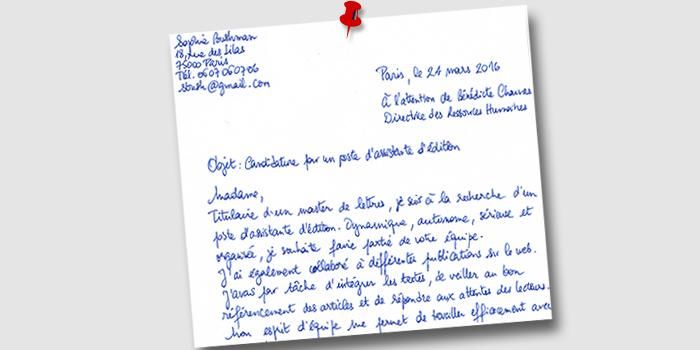 Sophie Buthman
18, rue des Lilas
75000 Paris
Tél. 0607060706
sbuth@gmail.com
Paris, le 24 mars 2016
à l'attention de Bénédicte Chauvas
Directrice des Ressources Humaines
Objet : Candidature pour un poste d'assistante d'édition
Madame,
Titulaire d'un master de lettres, je suis à la recherche d'un
poste d'assistante d'édition. Dynamique, autonome, sérieuse et
organisée, je souhaite faire partie de votre équipe.
J'ai également collaboré à différentes publications sur le web.
J'avais par tâche d'intégrer les textes, de veiller au bon
référencement des articles et de répondre aux attentes des lecteurs.
Mon esprit d'équipe me permet de travailler efficacement avec